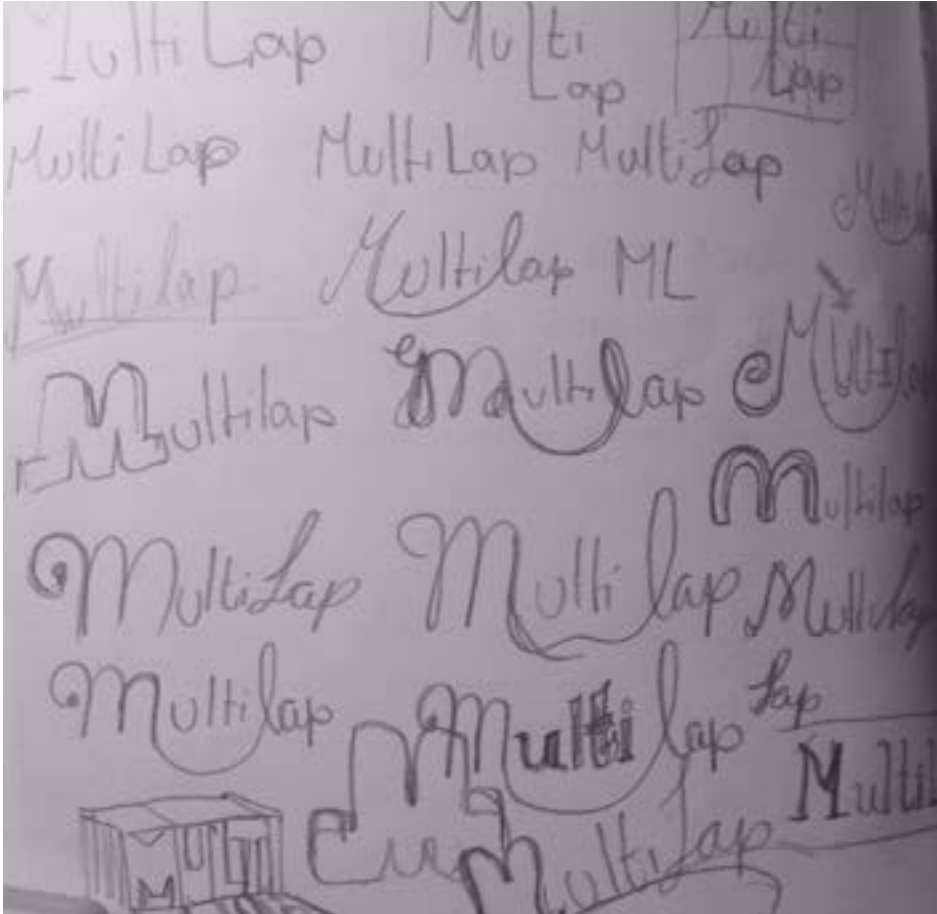 MultiLap Multi Lap Multi Lap
MultiLap MultiLap MultiLap
Multilap Multilap ML
Multilap Multilap Multilap
Multilap
MultiLap Multilap MultiLap
Multilap Multilap Lap
MultiLap Multil
M